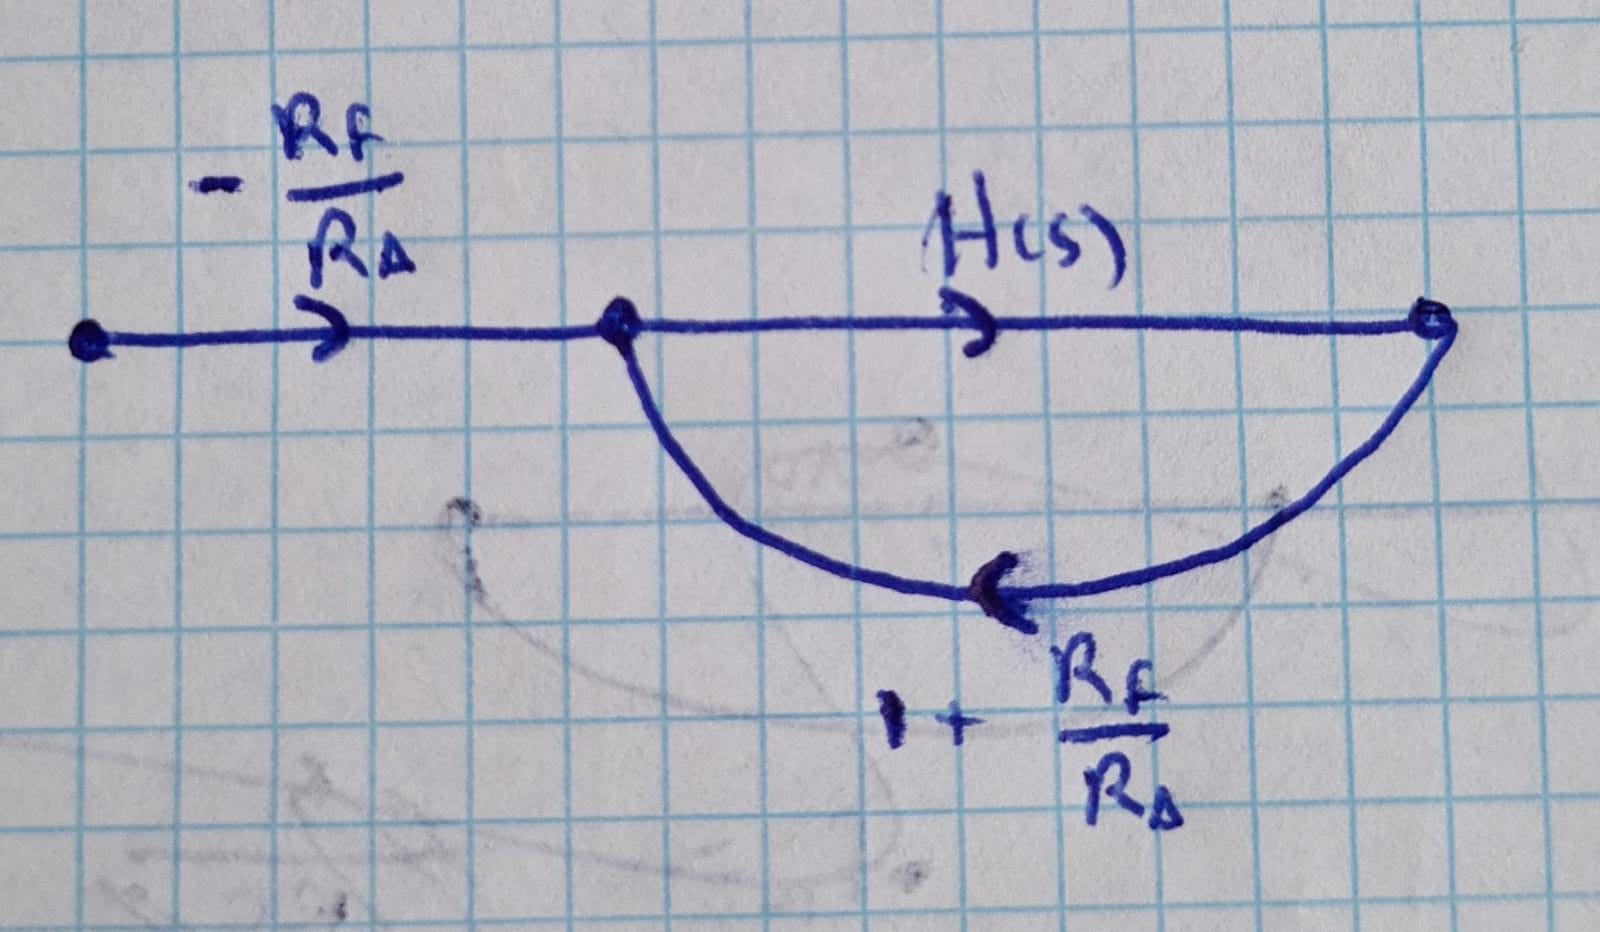 - RF/RΔ
H(s)
1 + RF/RΔ